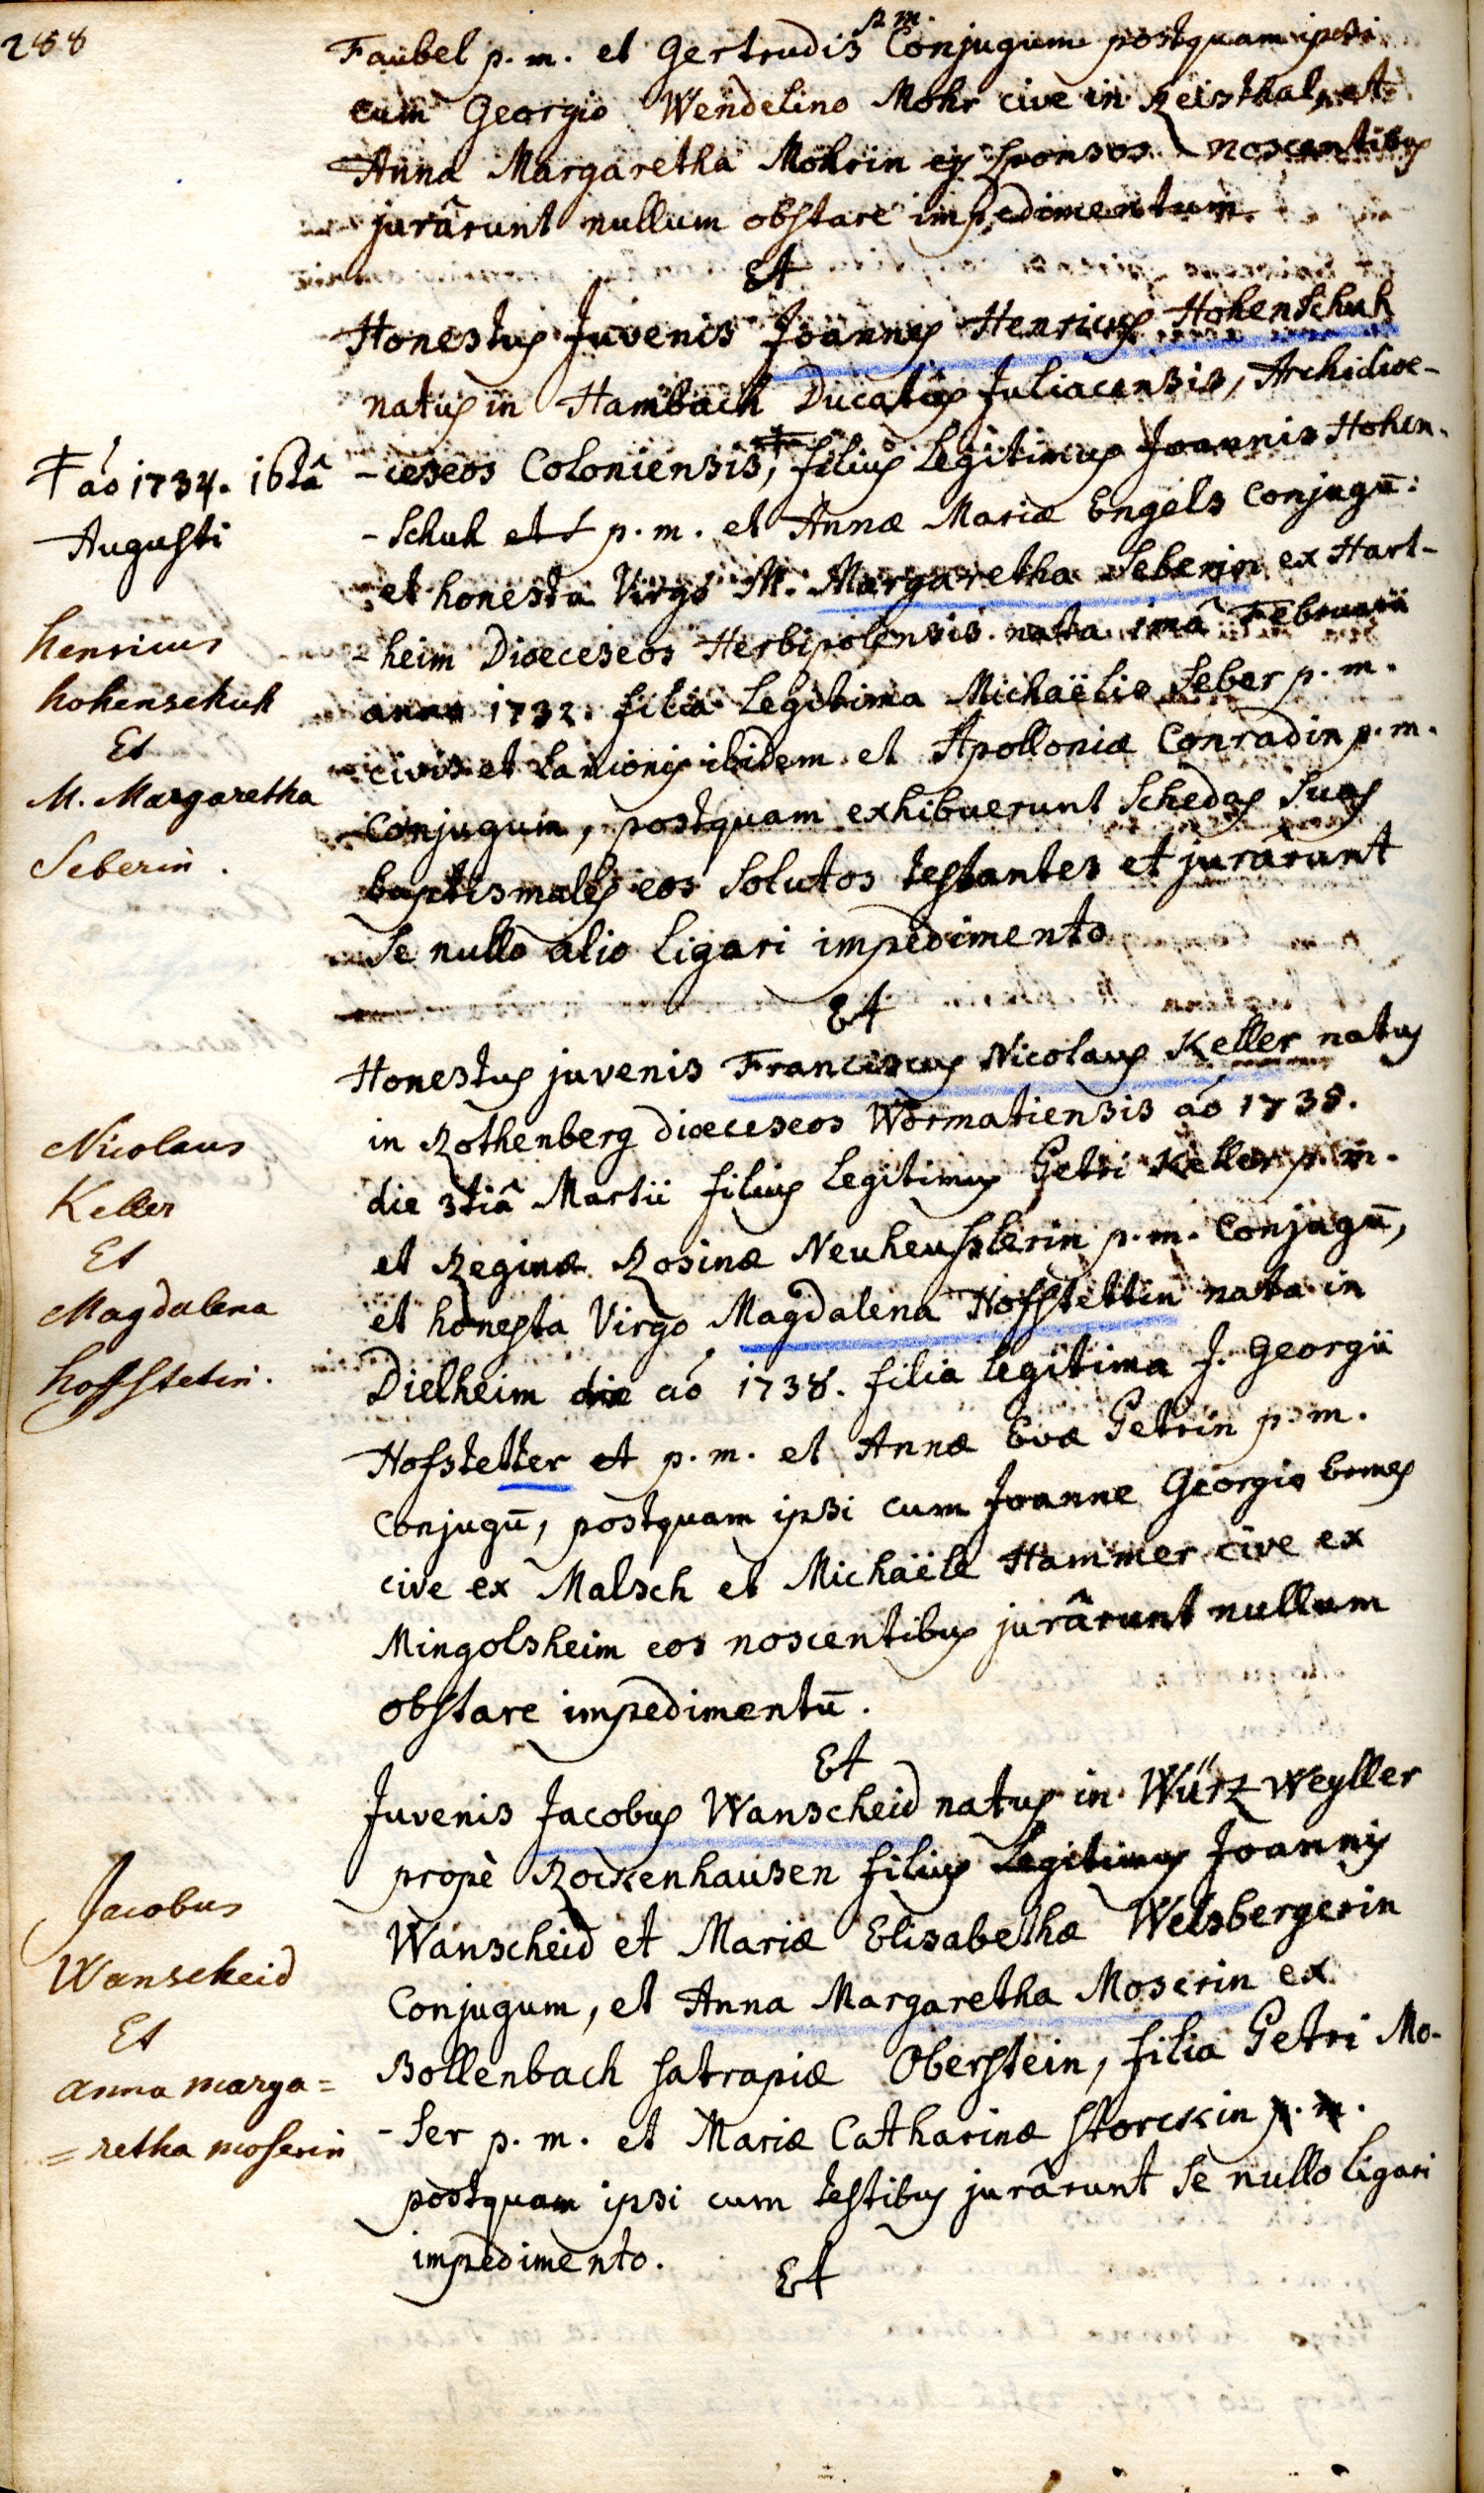 288
p. m.
Faubel p. m. et Gertrudis Conjugum postquam ipsi
cum Georgio Wendelino Mohr cive in Reisthal, et
Anna Margaretha Mohrin ej Sponsos noscentibus
jurârunt nullum obstare impedimentum.
Et
Honestus Juvenis Joannes Henricus Hohenschuh
natus in Hambach Ducatûs Juliacensis, Archidioe-
-ceseos Coloniensis, ǂ filius Legitimus Joannis Hohen-
-schuh et p. m. et Annæ Mariæ Engels Conjugū:
et honesta Virgo M. Margaretha Seberin ex Hart-
-heim Dioeceseos Herbipolensis nata 1mâ Februarii
anno 1732. filia Legitima Michaëlis Seber p. m.
civis et Lanionis ibidem et Apolloniæ Conradin p. m.
Conjugum, postquam exhibuerunt Schedas Suas
baptismales eos Solutos testantes et jurârunt
Se nullo alio Ligari impedimento
Et
Honestus juvenis Franciscus Nicolaus Keller natus
in Rothenberg dioeceseos Wormatiensis aó 1738.
die 3tiâ Martii filius Legitimus Petri Keller p. m.
et Reginæ Rosinæ Neuheusslerin p. m. Conjugū,
et honesta Virgo Magdalena Hofstettin nata in
Dielheim die aó 1738. filia Legitima J. Georgii
Hofstetter et p. m. et Annæ Evæ Petrin p. m.
Conjugū, postquam ipsi cum Joanne Georgio
cive ex Malsch et Michaële Hammer cive ex
Mingolsheim eos noscentibus jurârunt nullum
obstare impedimentū.
Et
Juvenis Jacobus Wanscheid natus in Würzweyller
propè Rockenhausen filius Legitimus Joannis
Wanscheid et Mariæ Elisabethæ Welsbergerin
Conjugum, et Anna Margaretha Moserin ex
Bollenbach satrapiæ Oberstein, filia Petri Mo-
-ser p. m. et Mariæ Catharinæ Storckin p. m.
postquam ipsi cum testibus jurârunt Se nullo Ligari
impedimento.
Et
ǂ aó 1734. 16tâ
Augusti
Henricus
hohenschuh
Et
M. Margaretha
Seberin.
Nicolaus
Keller
Et
Magdalena
hoffstetin.
Jacobus
Wanscheid
Et
anna marga=
=retha moserin